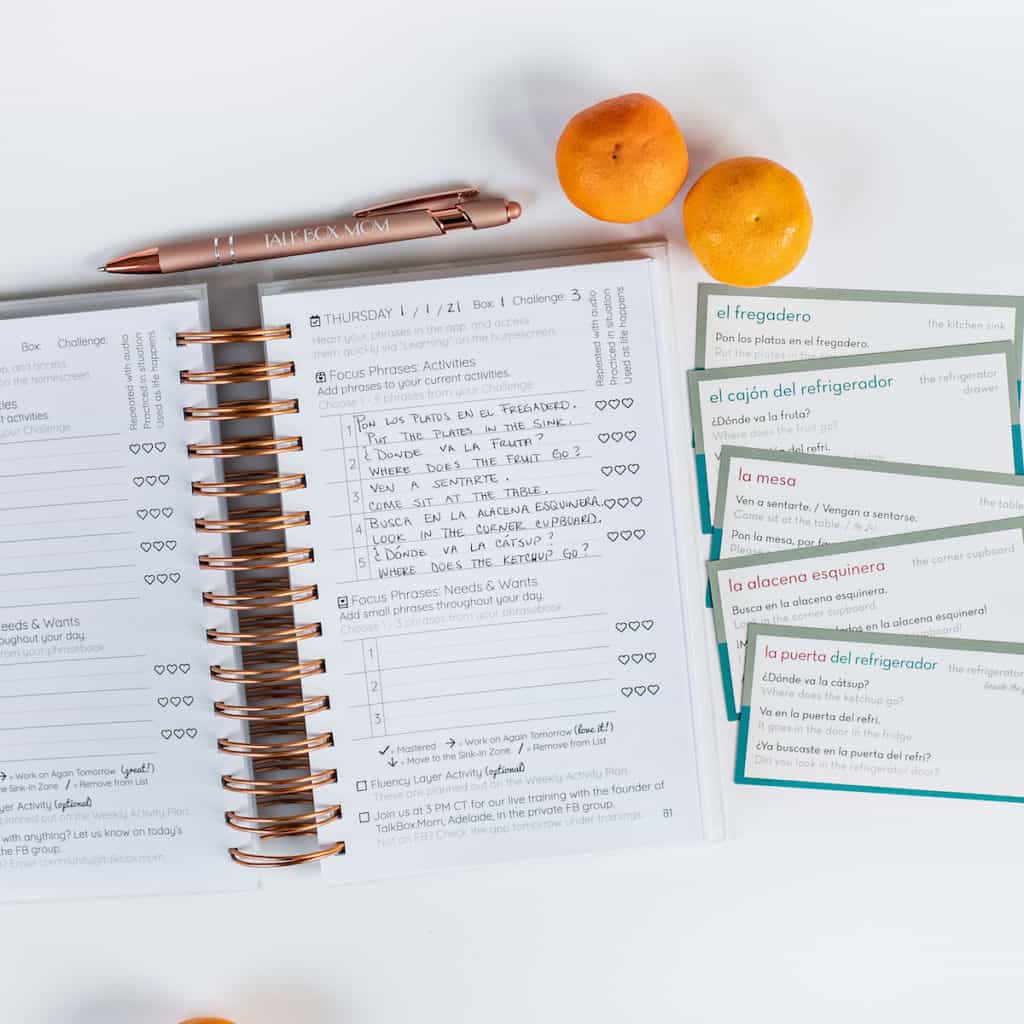 TALKBOX MOM
Box: Challenge:
Repeated with audio
Practiced in situation
Used as life happens
and access
on the homescreen.
activities.
your Challenge.
Needs & Wants
throughout your day.
from your phrasebook.
= Work on Again Tomorrow (great!)
Sink-In Zone / = Remove from List
Layer Activity (optional)
planned out on the Weekly Activity Plan.
with anything? Let us know on today's
the FB group.
Email community@talkbox.mom.
THURSDAY 1/1/21 Box: 1 Challenge: 3
Hear your phrases in the app, and access
them quickly via "Learning" on the homescreen.
Repeated with audio
Practiced in situation
Used as life happens
Focus Phrases: Activities
Add phrases to your current activities.
Choose 1 - 5 phrases from your Challenge.
1 PON LOS PLATOS EN EL FREGADERO.
PUT THE PLATES IN THE SINK.
2 ¿DONDE VA LA FRUTA?
WHERE DOES THE FRUIT GO?
3 VEN A SENTARTE.
COME SIT AT THE TABLE.
4 BUSCA EN LA ALACENA ESQUINERA.
LOOK IN THE CORNER CUPBOARD.
5 ¿DÓNDE VA LA CÁTSUP?
WHERE DOES THE KETCHUP GO?
Focus Phrases: Needs & Wants
Add small phrases throughout your day.
Choose 1 - 3 phrases from your phrasebook.
1
2
3
✓ = Mastered → = Work on Again Tomorrow (love it!)
↓ = Move to the Sink-In Zone / = Remove from List
Fluency Layer Activity (optional)
These are planned out on the Weekly Activity Plan.
Join us at 3 PM CT for our live training with the founder of
TalkBox.Mom, Adelaide, in the private FB group.
Not on FB? Check the app tomorrow under trainings.
81
el fregadero the kitchen sink
Pon los platos en el fregadero.
Put the plates in the
el cajón del refrigerador the refrigerator
drawer
¿Dónde va la fruta?
Where does the fruit go?
del refri.
la mesa the table
Ven a sentarte. / Vengan a sentarse.
Come sit at the table.
Pon la mesa, por
la alacena esquinera the corner cupboard
Busca en la alacena esquinera.
Look in the corner cupboard.
en la alacena esquinera!
cupboard!
la puerta del refrigerador the refrigerator
¿Dónde va la cátsup?
Where does the ketchup go?
Va en la puerta del refri.
It goes in the door in the fridge
¿Ya buscaste en la puerta del refri?
Did you look in the refrigerator door?